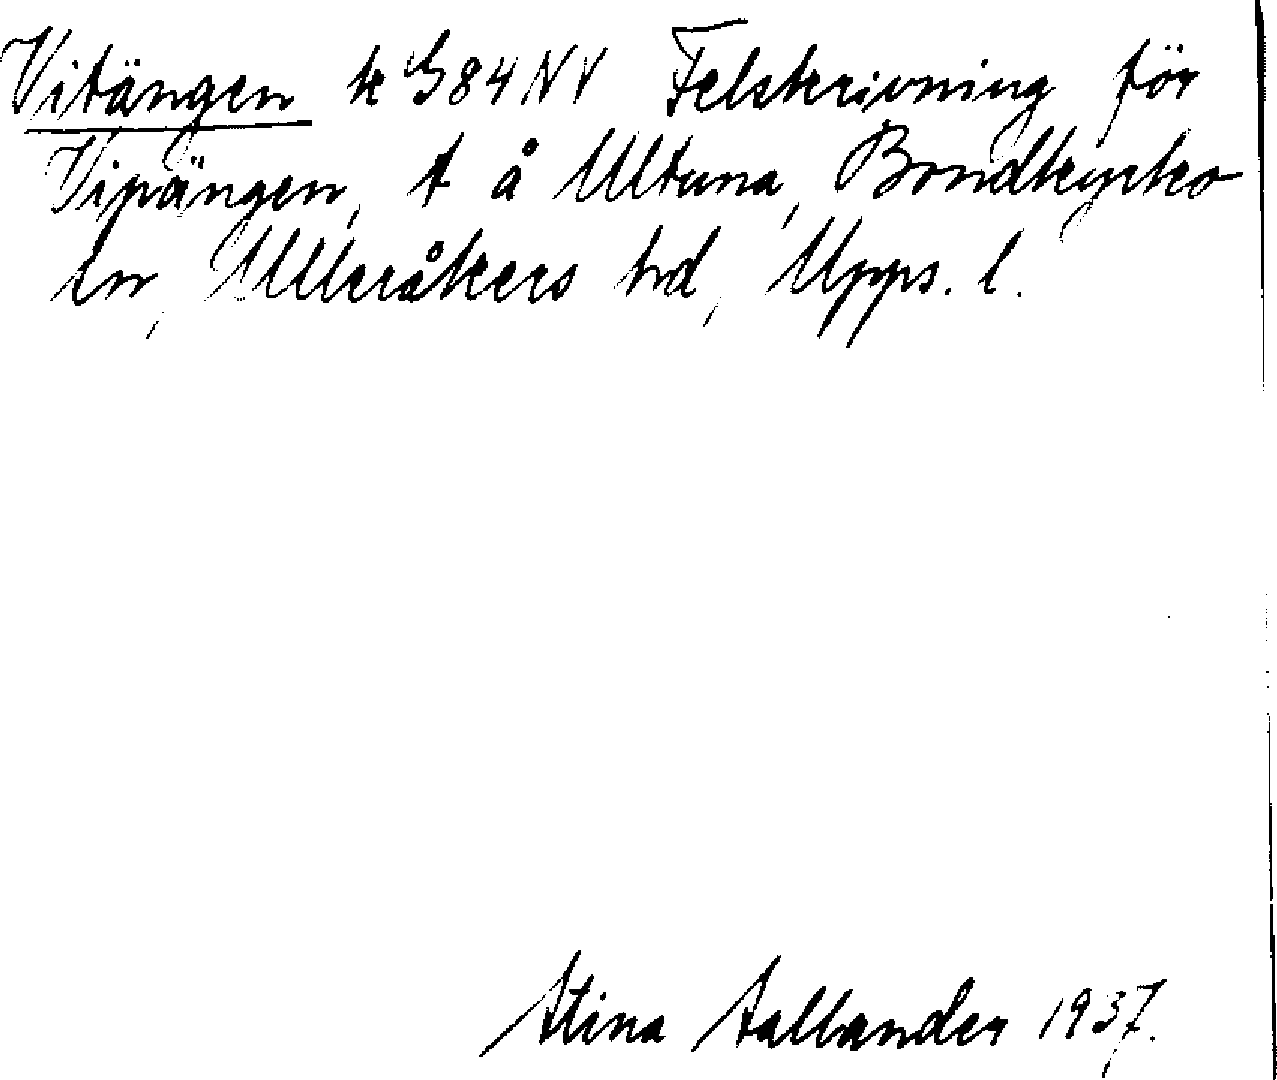 Vitängen k G84NV Felskrivning för
Vipängen, t å Ultuna, Bondkyrko
sn, Ulleråkers hd, Upps. l.
Stina Sallander 1937.